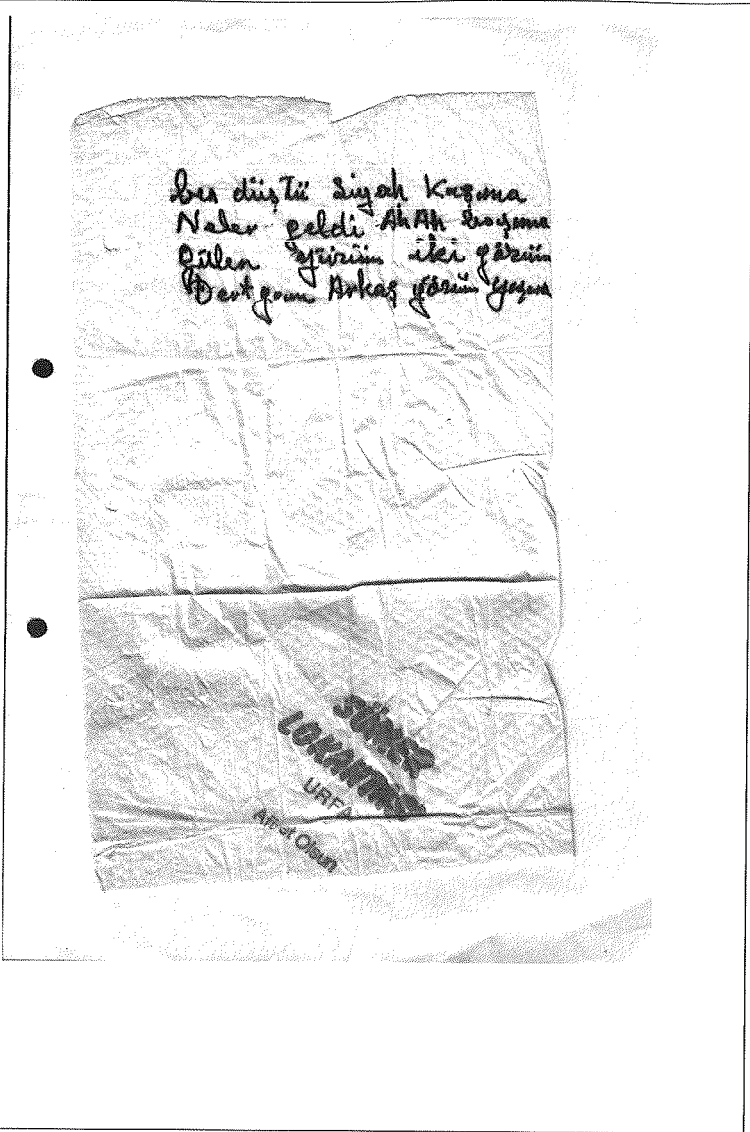 düştü Siyah Kaşıma
Neler geldi Ah Ah başıma
Gülen yüzüm iki gözüm
Arkaş gözüm yaşına
SÜMER
LOKANTASI
URFA
Afiyet Olsun